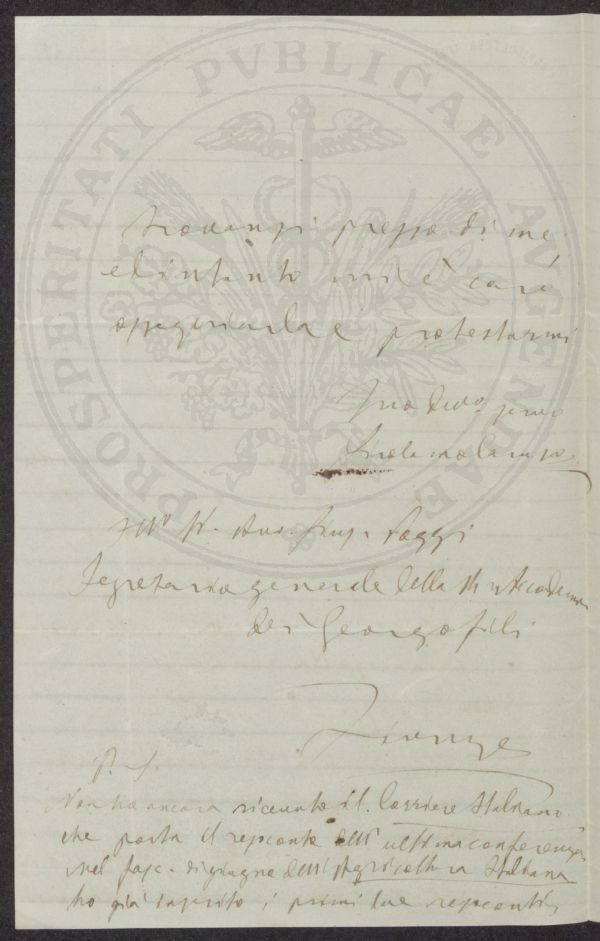 PROSPERITATI PUBLICAE AUGENDAE
trovansi presso di me,
ed intanto mi è caro
ossequiarla e protestarmi
Suo devo. servo
Girolamo Caruso
Illo Sr. Avv. Giusp.
Segretario generale della R. Accademia
dei Georgofili
Firenze
P. S.
Non ho ancora ricevuto il Corriere Italiano
che porta il resoconto dell' ultima conferenza
nel fasc. di giugno dell' Agricoltura Italiana
ho già inserito i primi due resoconti,